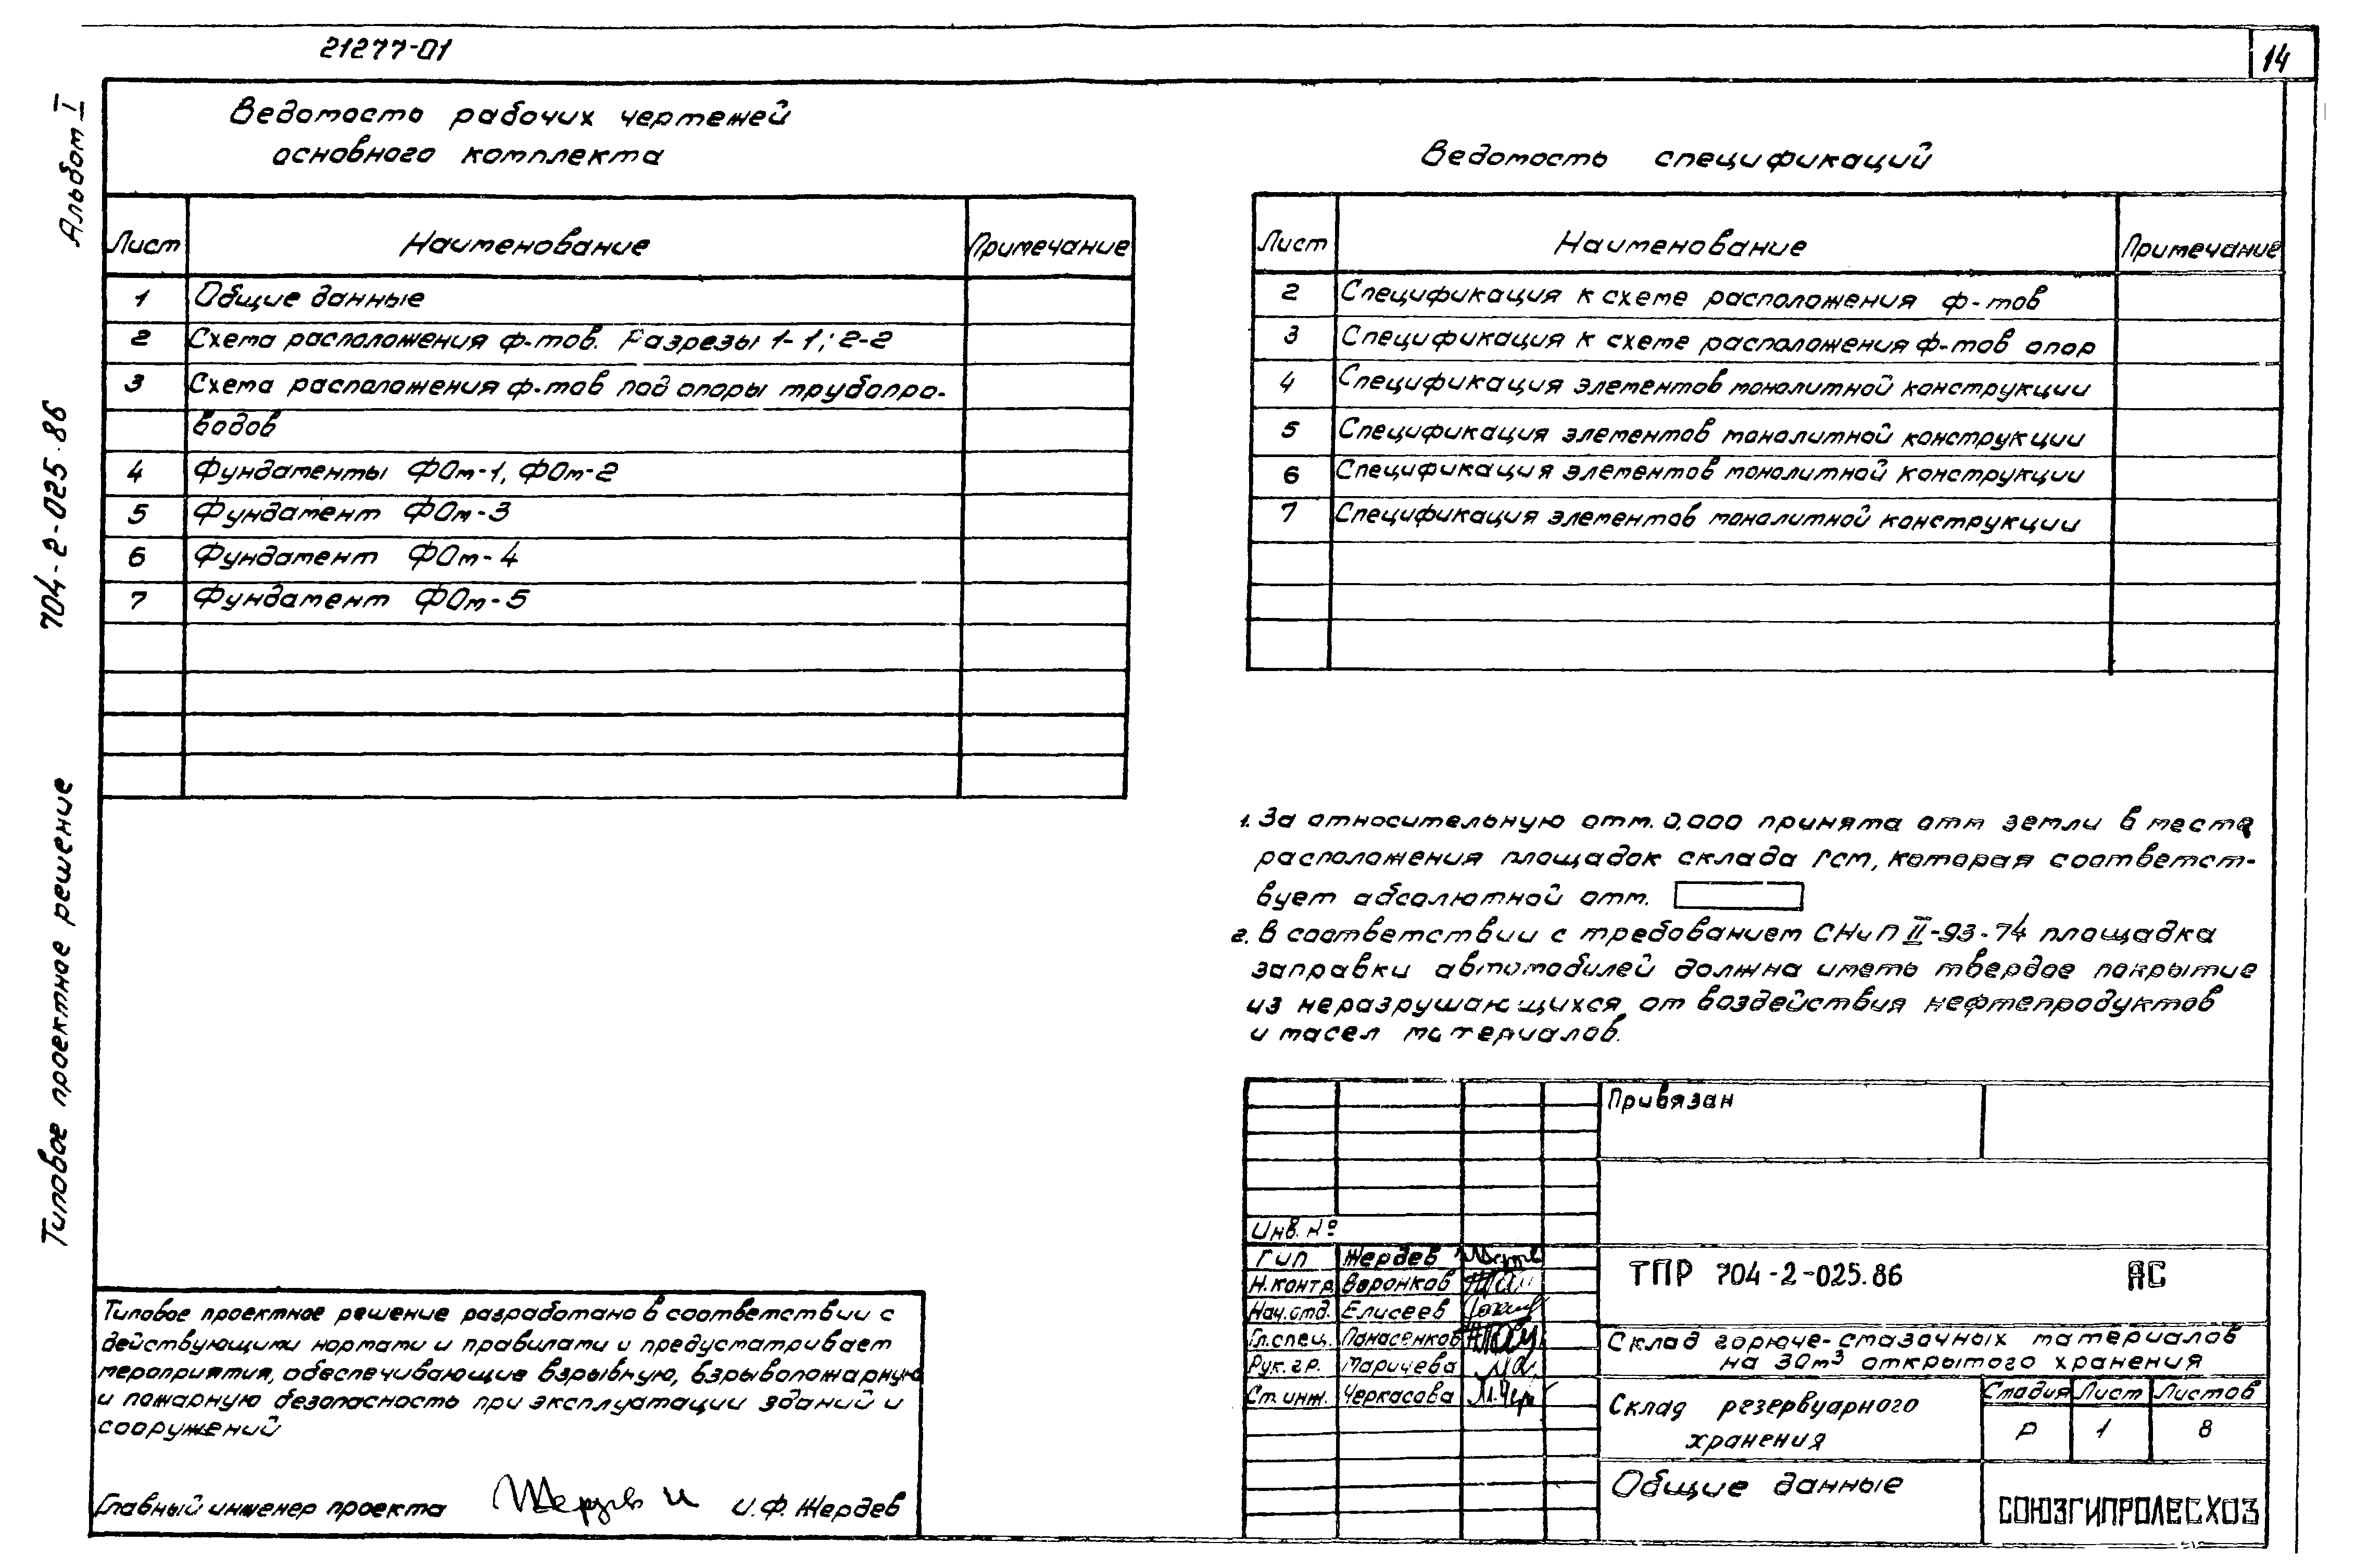 21277-01
14
Альбом I
704-2-025.86
Типовое проектное решение
Ведомость рабочих чертежей
основного комплекта
Лист Наименование Примечание
1 Общие данные
2 Схема расположения ф-тов. Разрезы 1-1; 2-2
3 Схема расположения ф-тов под опоры трубопро-
водов
4 Фундаменты ФОм-1, ФОм-2
5 Фундамент ФОм-3
6 Фундамент ФОм-4
7 Фундамент ФОм-5
Ведомость спецификаций
Лист Наименование Примечание
2 Спецификация к схеме расположения ф-тов
3 Спецификация к схеме расположения ф-тов опор
4 Спецификация элементов монолитной конструкции
5 Спецификация элементов монолитной конструкции
6 Спецификация элементов монолитной конструкции
7 Спецификация элементов монолитной конструкции
1. За относительную отм. 0,000 принята отм земли в месте
расположения площадок склада ГСМ, которая соответст-
вует абсолютной отм.
2. В соответствии с требованием СНиП II-93-74 площадка
заправки автомобилей должна иметь твердое покрытие
из неразрушающихся от воздействия нефтепродуктов
и масел материалов.
Типовое проектное решение разработано в соответствии с
действующими нормами и правилами и предусматривает
мероприятия, обеспечивающие взрывную, взрывопожарную
и пожарную безопасность при эксплуатации зданий и
сооружений
Главный инженер проекта И.Ф. Жердев
Привязан
Инв. №
ГИП Жердев
Н.контр Воронков
Нач.отд. Елисеев
Гл.спец. Панасенков
Рук.гр. Маричева
Ст.инж. Черкасова
ТПР 704-2-025.86 АС
Склад горюче-смазочных материалов
на 30м³ открытого хранения
Склад резервуарного
хранения
Стадия Лист Листов
Р 1 8
Общие данные
СОЮЗГИПРОЛЕСХОЗ